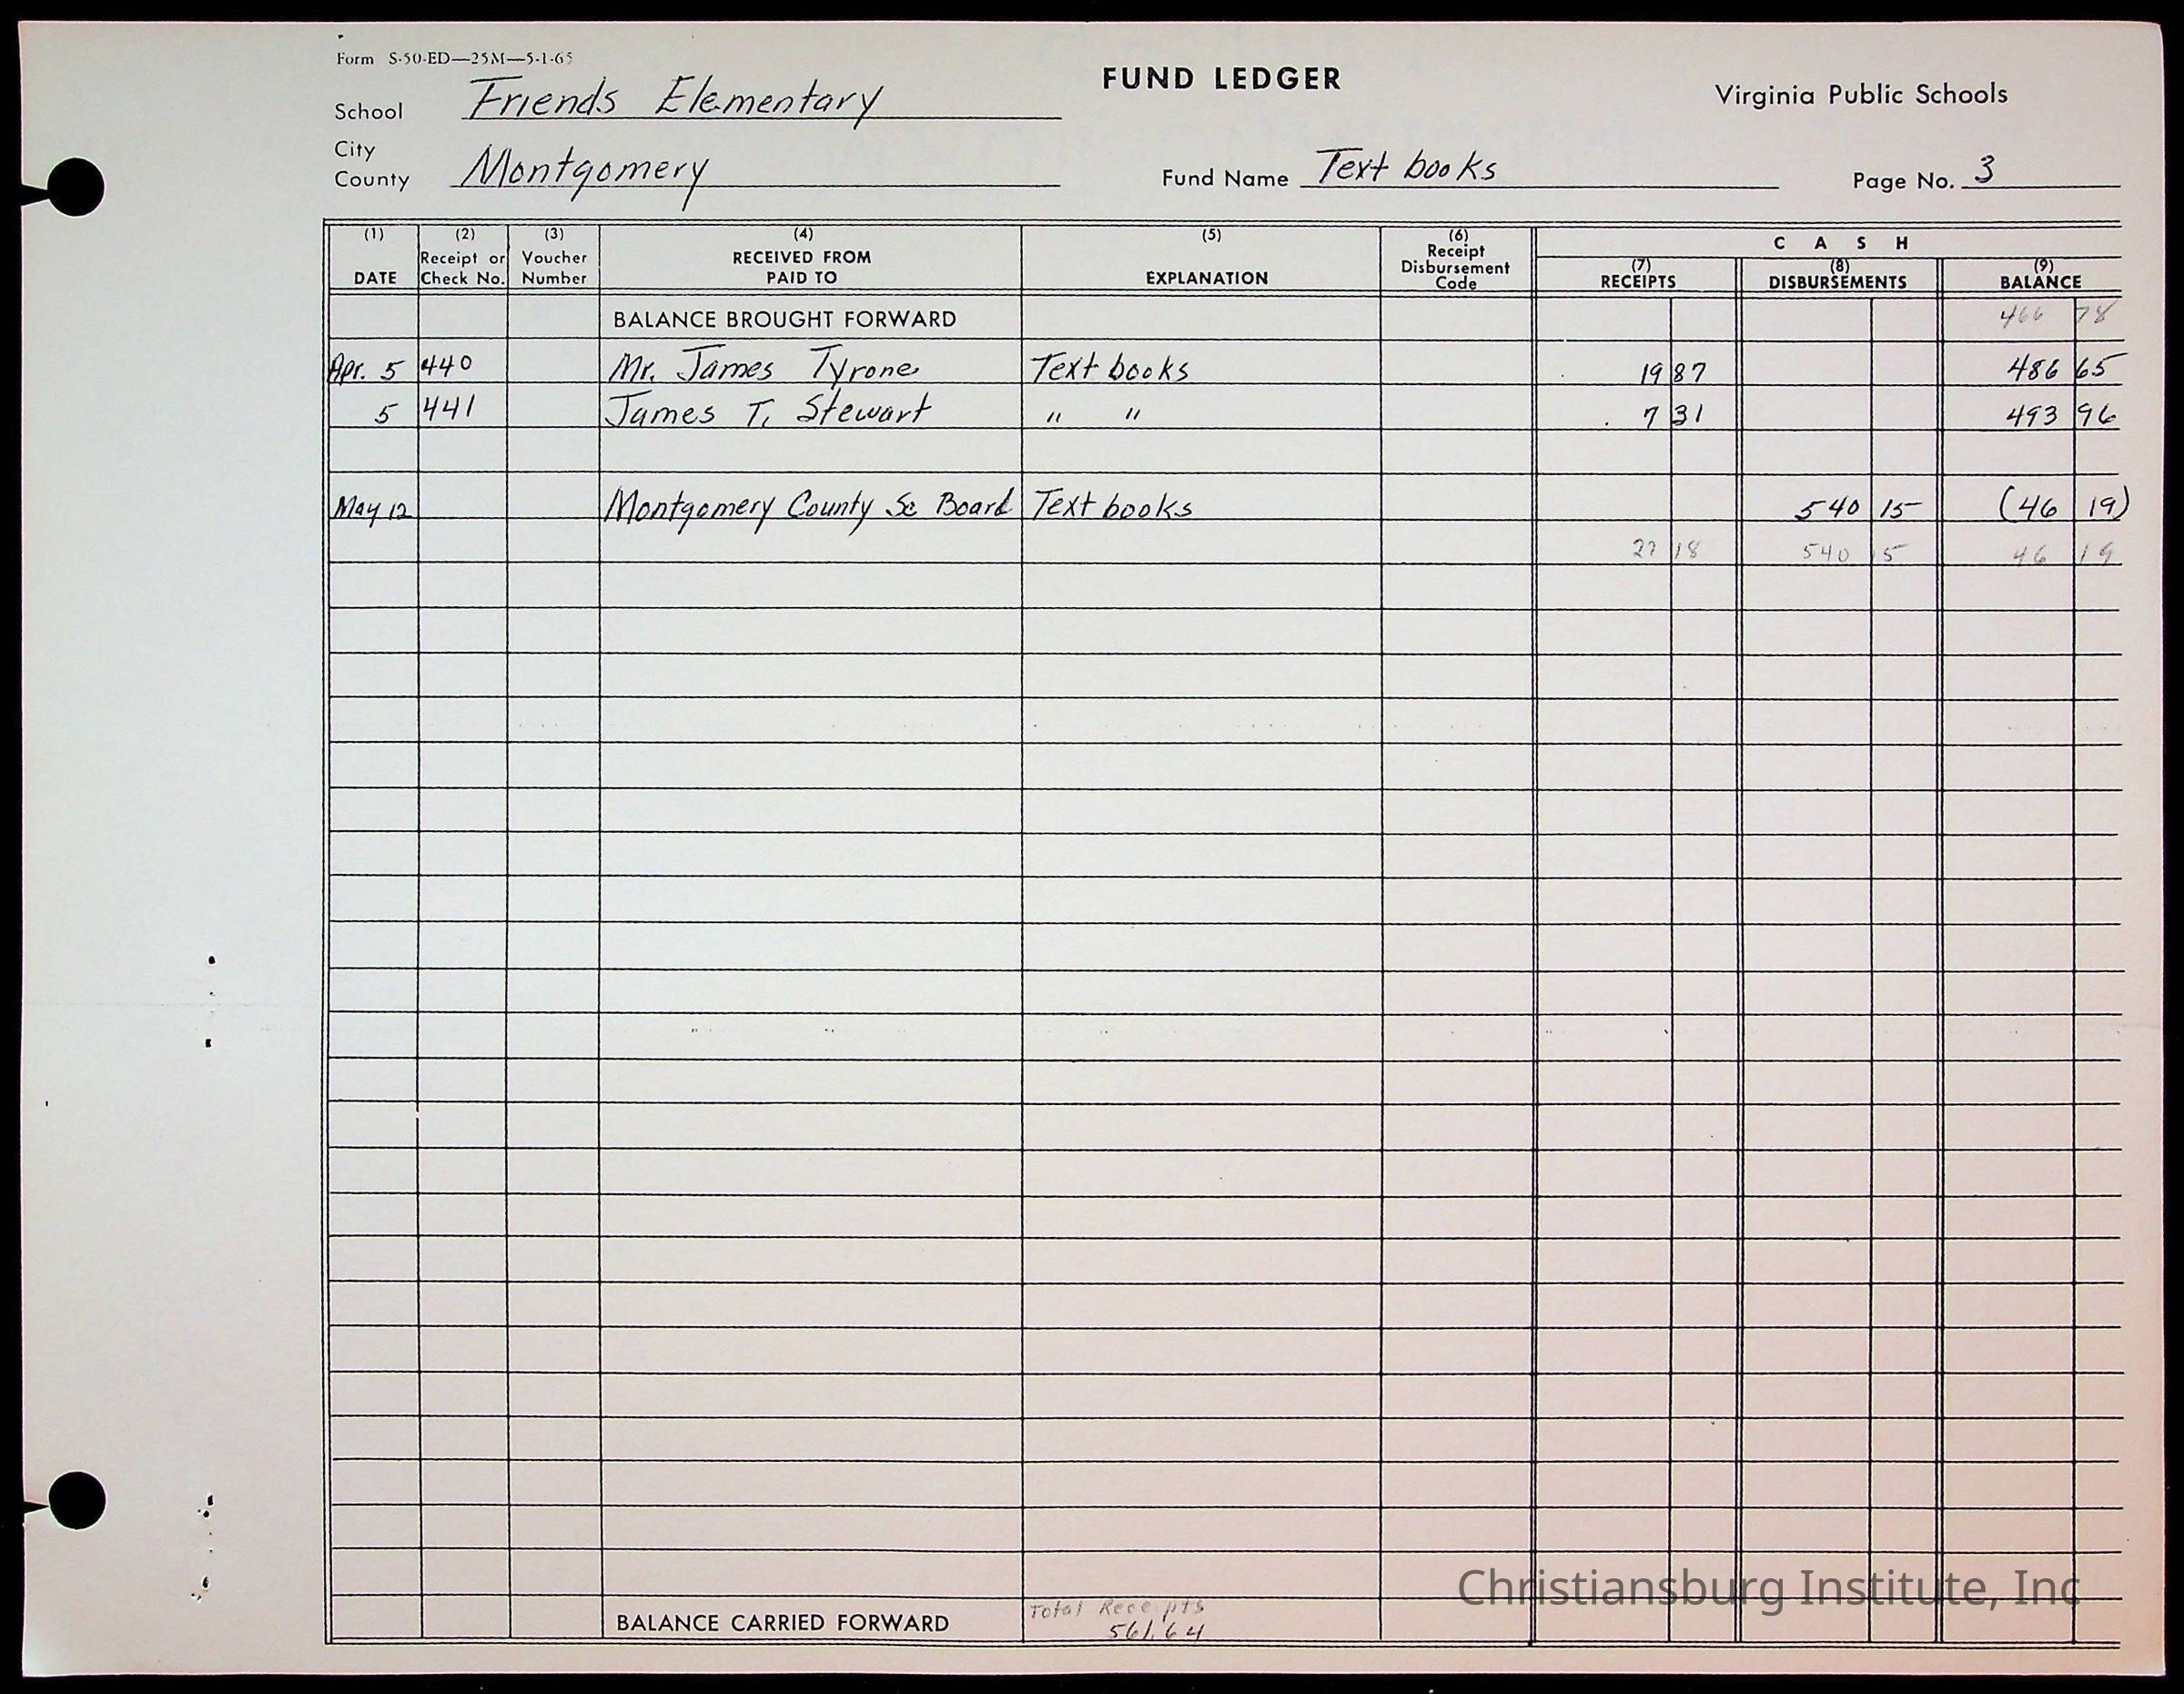 Form S-50-ED—25M—5-1-65
FUND LEDGER
Virginia Public Schools
School Friends Elementary
City
County Montgomery
Fund Name Text books
Page No. 3
(1) (2) (3) (4) (5) (6) C A S H
DATE Receipt or Check No. Voucher Number RECEIVED FROM PAID TO EXPLANATION Receipt Disbursement Code (7) RECEIPTS (8) DISBURSEMENTS (9) BALANCE
BALANCE BROUGHT FORWARD 466 78
Apr. 5 440 Mr. James Tyrone Text books 19 87 486 65
5 441 James T. Stewart " " 7 31 493 96
May 12 Montgomery County Sc Board Text books 540 15 (46 19)
27 18 540 15 46 19
Total Receipts
BALANCE CARRIED FORWARD 561.64
Christiansburg Institute, Inc